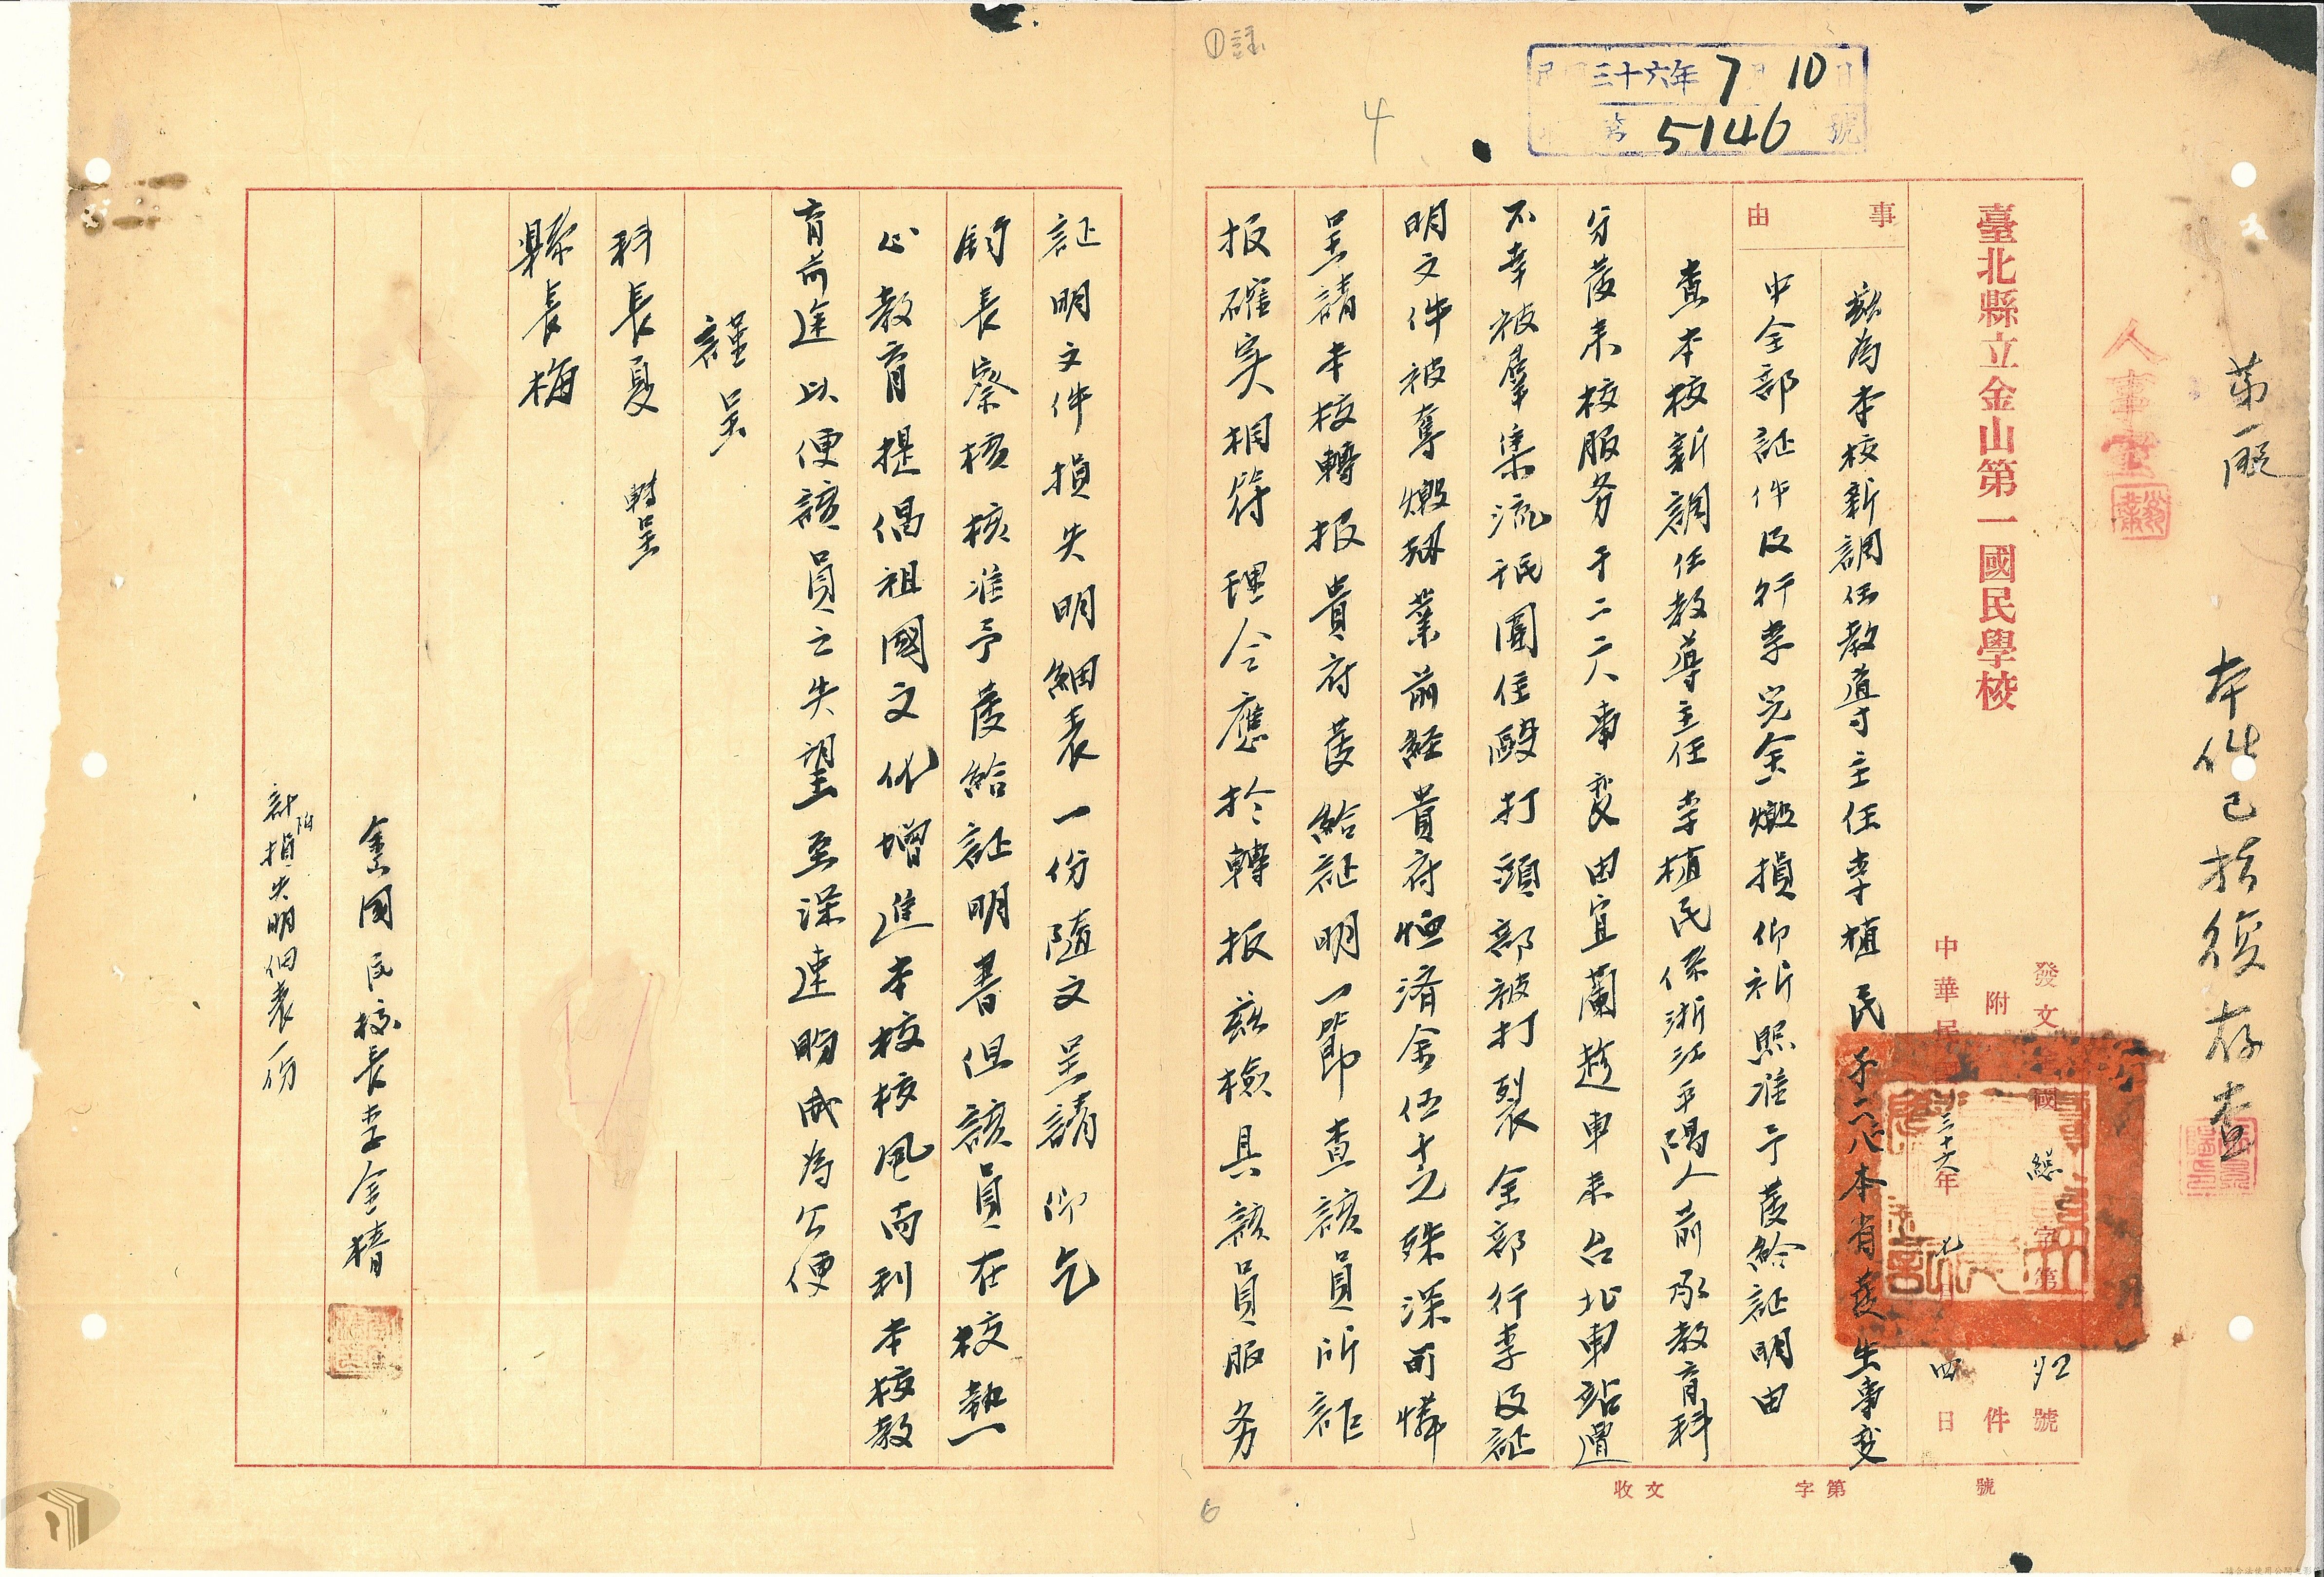 ①註
4
民國三十六年7月10日
第5146號
第一股
本件已指復存查
人事室
臺北縣立金山第一國民學校
發文金國總字第92號
附件
中華民國三十六年七月四日
事由
茲為本校新調任教導主任李植民于二八本省發生事變
中全部証件及行李完全燬損仰祈照准予發給証明由
查本校新調任教導主任李植民係浙江平陽人前承教育科
分發來校服务于二二八事変由宜蘭趁車來台北車站遭
不幸被羣集流氓圍住毆打頭部被打裂全部行李及証
明文件被奪燬刼業前経貴府恤済金伍千元殊深可憐
呈請本校轉报貴府發給証明一節查該員所訴
报確実相符理合應於轉报茲檢具該員服务
証明文件損失明細表一份隨文呈請仰乞
鈞長察核核准予發給証明書但該員在校熱
心教育提倡祖國文化增進本校校風而利本校教
育前途以便該員之失望至深速盼成為公便
謹呈
科長夏 轉呈
縣長梅
金國民校長李金樁
計附損失明細表一份
收文 字第 號
6